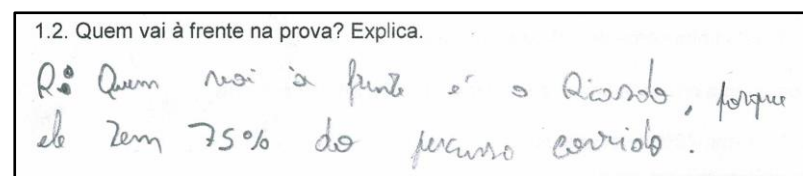 1.2. Quem vai à frente na prova? Explica.
R: Quem vai à frente é o Ricardo, porque
ele tem 75% do percurso corrido.